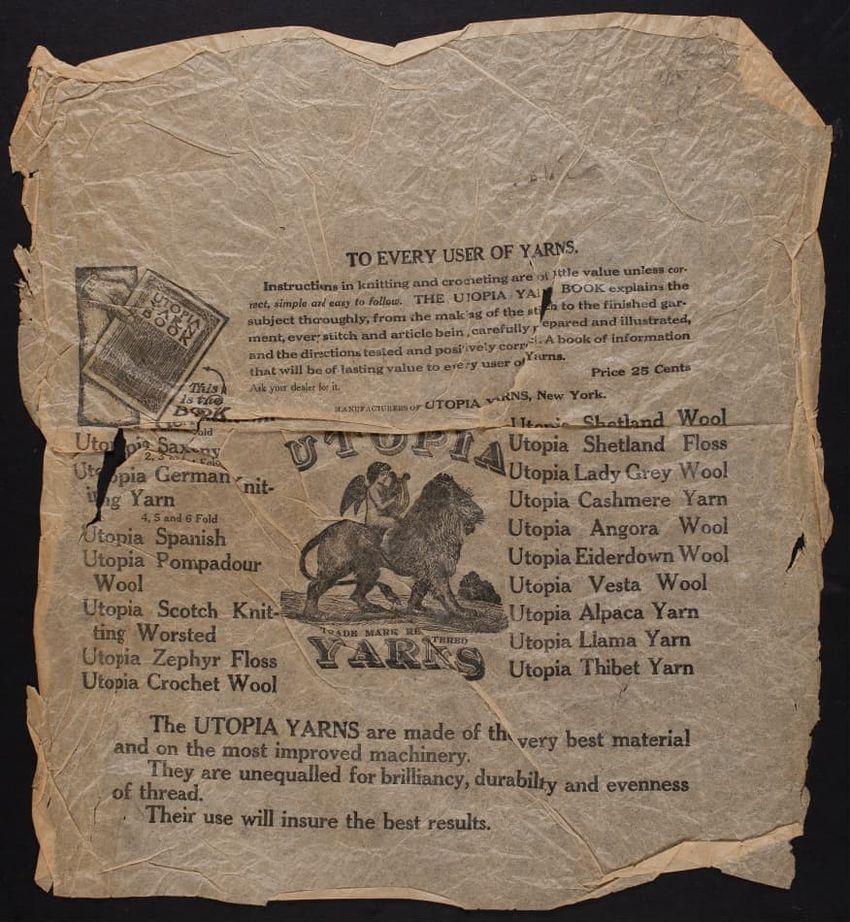 TO EVERY USER OF YARNS.
Instructions in knitting and crocheting are of little value unless cor-
rect, simple and easy to follow. THE UTOPIA YARN BOOK explains the
subject thoroughly, from the making of the stitch to the finished gar-
ment, every stitch and article being carefully prepared and illustrated,
and the directions tested and positively correct. A book of information
that will be of lasting value to every user of Yarns.
Price 25 Cents
Ask your dealer for it.
MANUFACTURERS OF UTOPIA YARNS, New York.
UTOPIA
YARN
BOOK
This
is the
BOOK
Fold
Utopia Saxony
2, 3
Fold
Utopia German Knit-
ting Yarn
4, 5 and 6 Fold
Utopia Spanish
Utopia Pompadour
Wool
Utopia Scotch Knit-
ting Worsted
Utopia Zephyr Floss
Utopia Crochet Wool
UTOPIA
TRADE MARK REGISTERED
YARNS
Utopia Shetland Wool
Utopia Shetland Floss
Utopia Lady Grey Wool
Utopia Cashmere Yarn
Utopia Angora Wool
Utopia Eiderdown Wool
Utopia Vesta Wool
Utopia Alpaca Yarn
Utopia Llama Yarn
Utopia Thibet Yarn
The UTOPIA YARNS are made of the very best material
and on the most improved machinery.
They are unequalled for brilliancy, durability and evenness
of thread.
Their use will insure the best results.